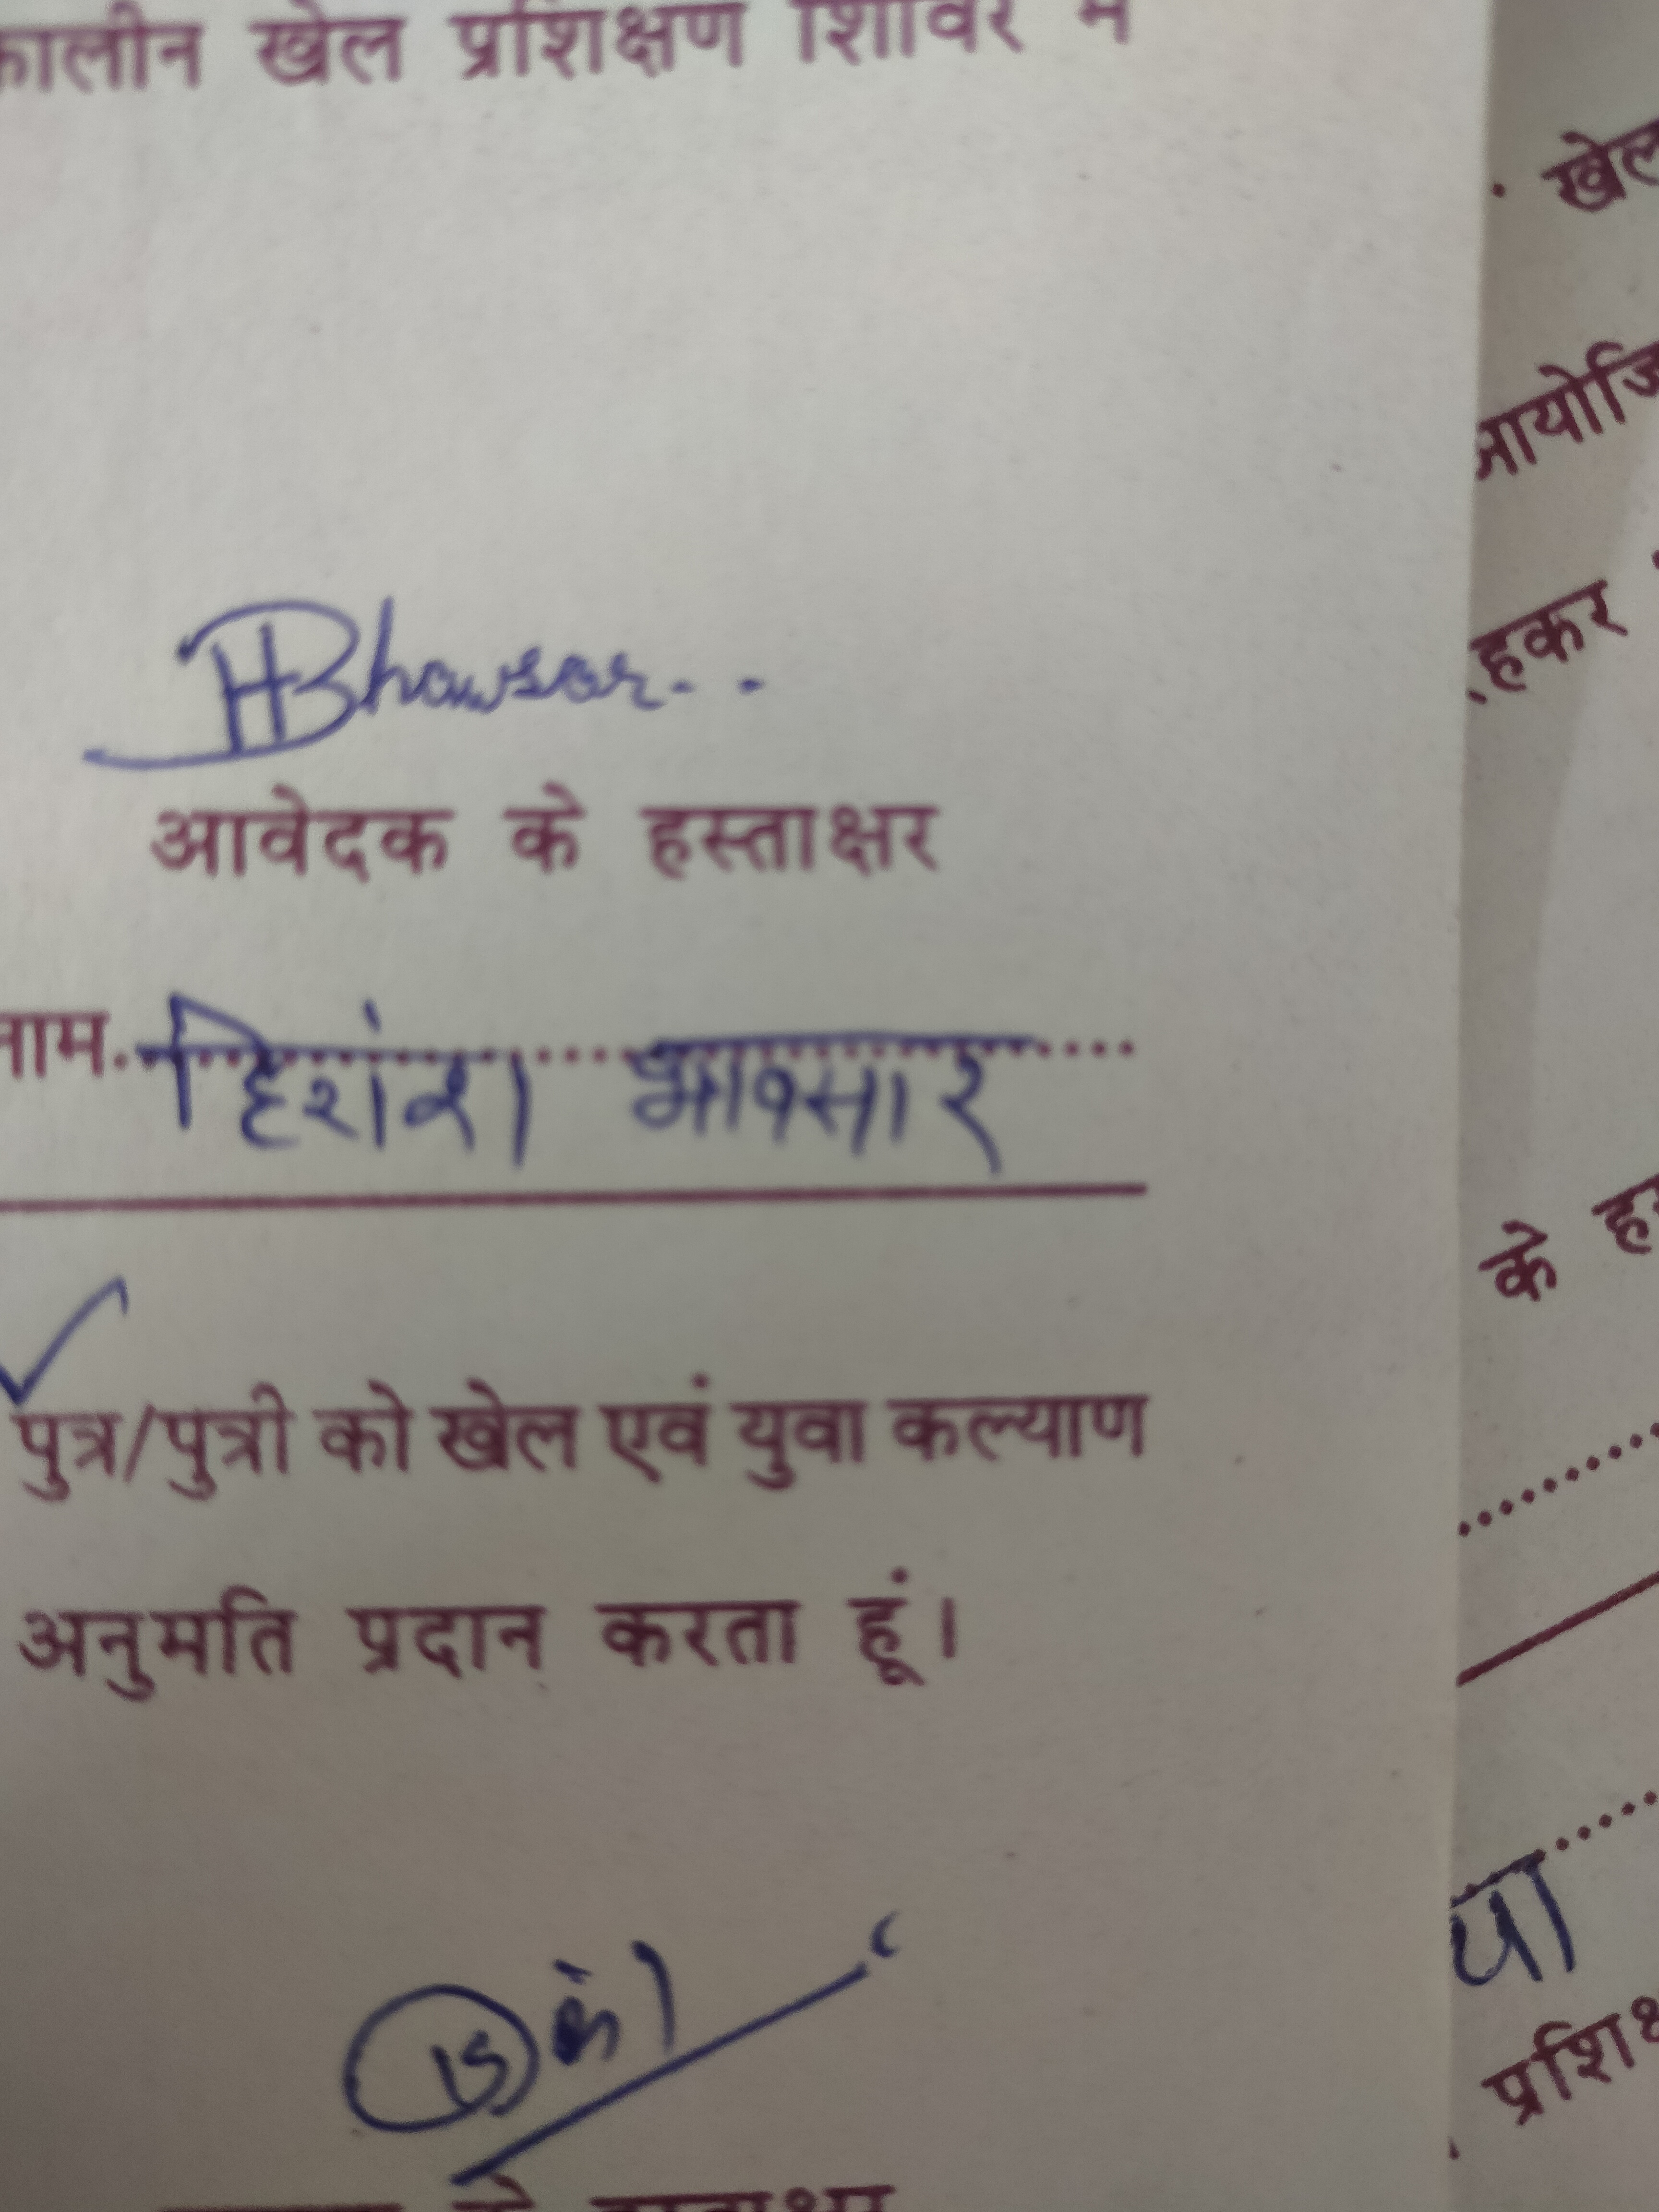 कालीन खेल प्रशिक्षण शिविर में
HBhawsar..
आवेदक के हस्ताक्षर
नाम. हिरांश भावसार
पुत्र/पुत्री को खेल एवं युवा कल्याण
अनुमति प्रदान करता हूं।
के हस्ताक्षर
खेल
आयोजि
रहकर
के ह
या
प्रशिक्ष